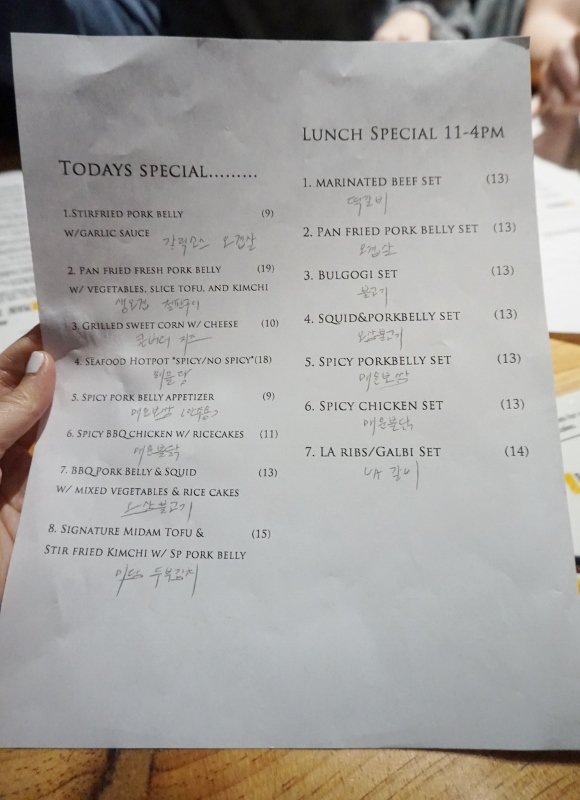 TODAYS SPECIAL.........
1.STIRFRIED PORK BELLY (9)
W/GARLIC SAUCE
갈릭소스 오겹살
2. PAN FRIED FRESH PORK BELLY (19)
W/ VEGETABLES, SLICE TOFU, AND KIMCHI
생오겹 철판구이
3. GRILLED SWEET CORN W/ CHEESE (10)
콘버터 치즈
4. SEAFOOD HOTPOT *SPICY/NO SPICY*(18)
해물탕
5. SPICY PORK BELLY APPETIZER (9)
매운보쌈
6. SPICY BBQ CHICKEN W/ RICECAKES (11)
매운불닭
7. BBQ PORK BELLY & SQUID (13)
W/ MIXED VEGETABLES & RICE CAKES
오삼불고기
8. SIGNATURE MIDAM TOFU & (15)
STIR FRIED KIMCHI W/ SP PORK BELLY
미담 두부김치
LUNCH SPECIAL 11-4PM
1. MARINATED BEEF SET (13)
떡갈비
2. PAN FRIED PORK BELLY SET (13)
오겹살
3. BULGOGI SET (13)
불고기
4. SQUID&PORKBELLY SET (13)
오삼불고기
5. SPICY PORKBELLY SET (13)
매운보쌈
6. SPICY CHICKEN SET (13)
매운불닭
7. LA RIBS/GALBI SET (14)
LA 갈비